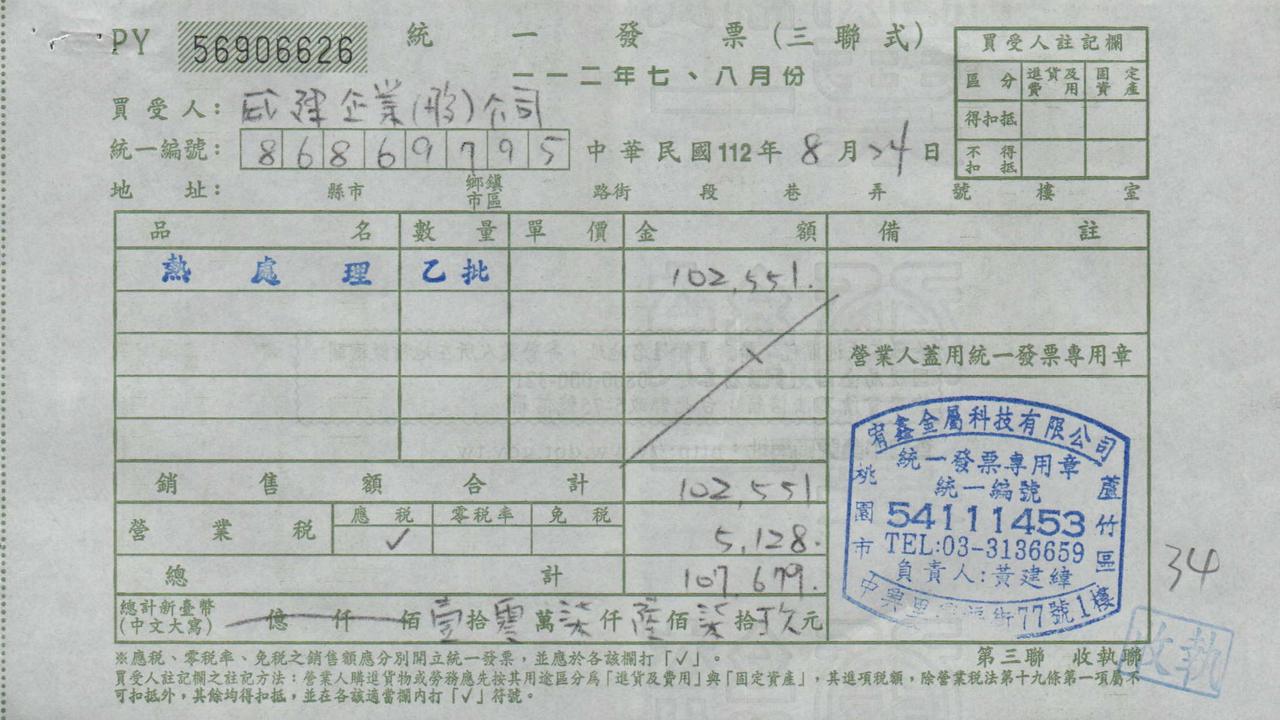 PY 56906626 統一發票(三聯式)
一一二年七、八月份
買受人註記欄
區分 進貨及費用 固定資產
得扣抵
不得扣抵
買受人: 企業(股)公司
統一編號: 86869795 中華民國112年8月24日
地址: 縣市 鄉鎮市區 路街 段 巷 弄 號 樓 室
品名 數量 單價 金額 備註
熱處理 乙批 102,551.
營業人蓋用統一發票專用章
銷售額合計 102,551
營業稅 應稅 ✓ 零稅率 免稅 5,128.
總計 107,679.
總計新臺幣(中文大寫) 億 仟 佰壹拾零萬柒仟陸佰柒拾玖元
鑫金屬科技有限公司
統一發票專用章
統一編號
54111453
TEL:03-3136659
負責人:黃建緯
桃園市
蘆竹區
中興里 街77號1樓
34
※應稅、零稅率、免稅之銷售額應分別開立統一發票,並應於各該欄打「✓」。
第三聯 收執聯
收執
買受人註記欄之註記方法:營業人購進貨物或勞務應先按其用途區分為「進貨及費用」與「固定資產」,其進項稅額,除營業稅法第十九條第一項屬不
可扣抵外,其餘均得扣抵,並在各該適當欄內打「✓」符號。